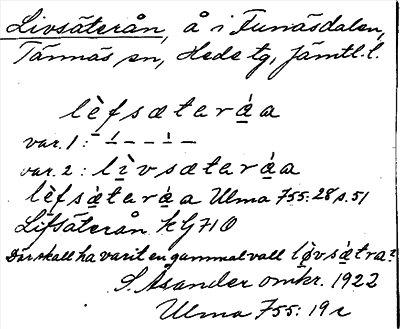 Livsäterån, å i Funäsdalen,
Tännäs sn, Hede tg, Jämtl. l.
lèfsætaráa
var. 1: – ´ – – ´ –
var. 2: lìvsætaráa
lèfsǽtaráa Ulma 755:28 s. 51
Lifsäterån kG 71 O
Där skall ha varit en gammal vall lø̀vsǽtra?
S. Asander omkr. 1922
Ulma 755:19 r